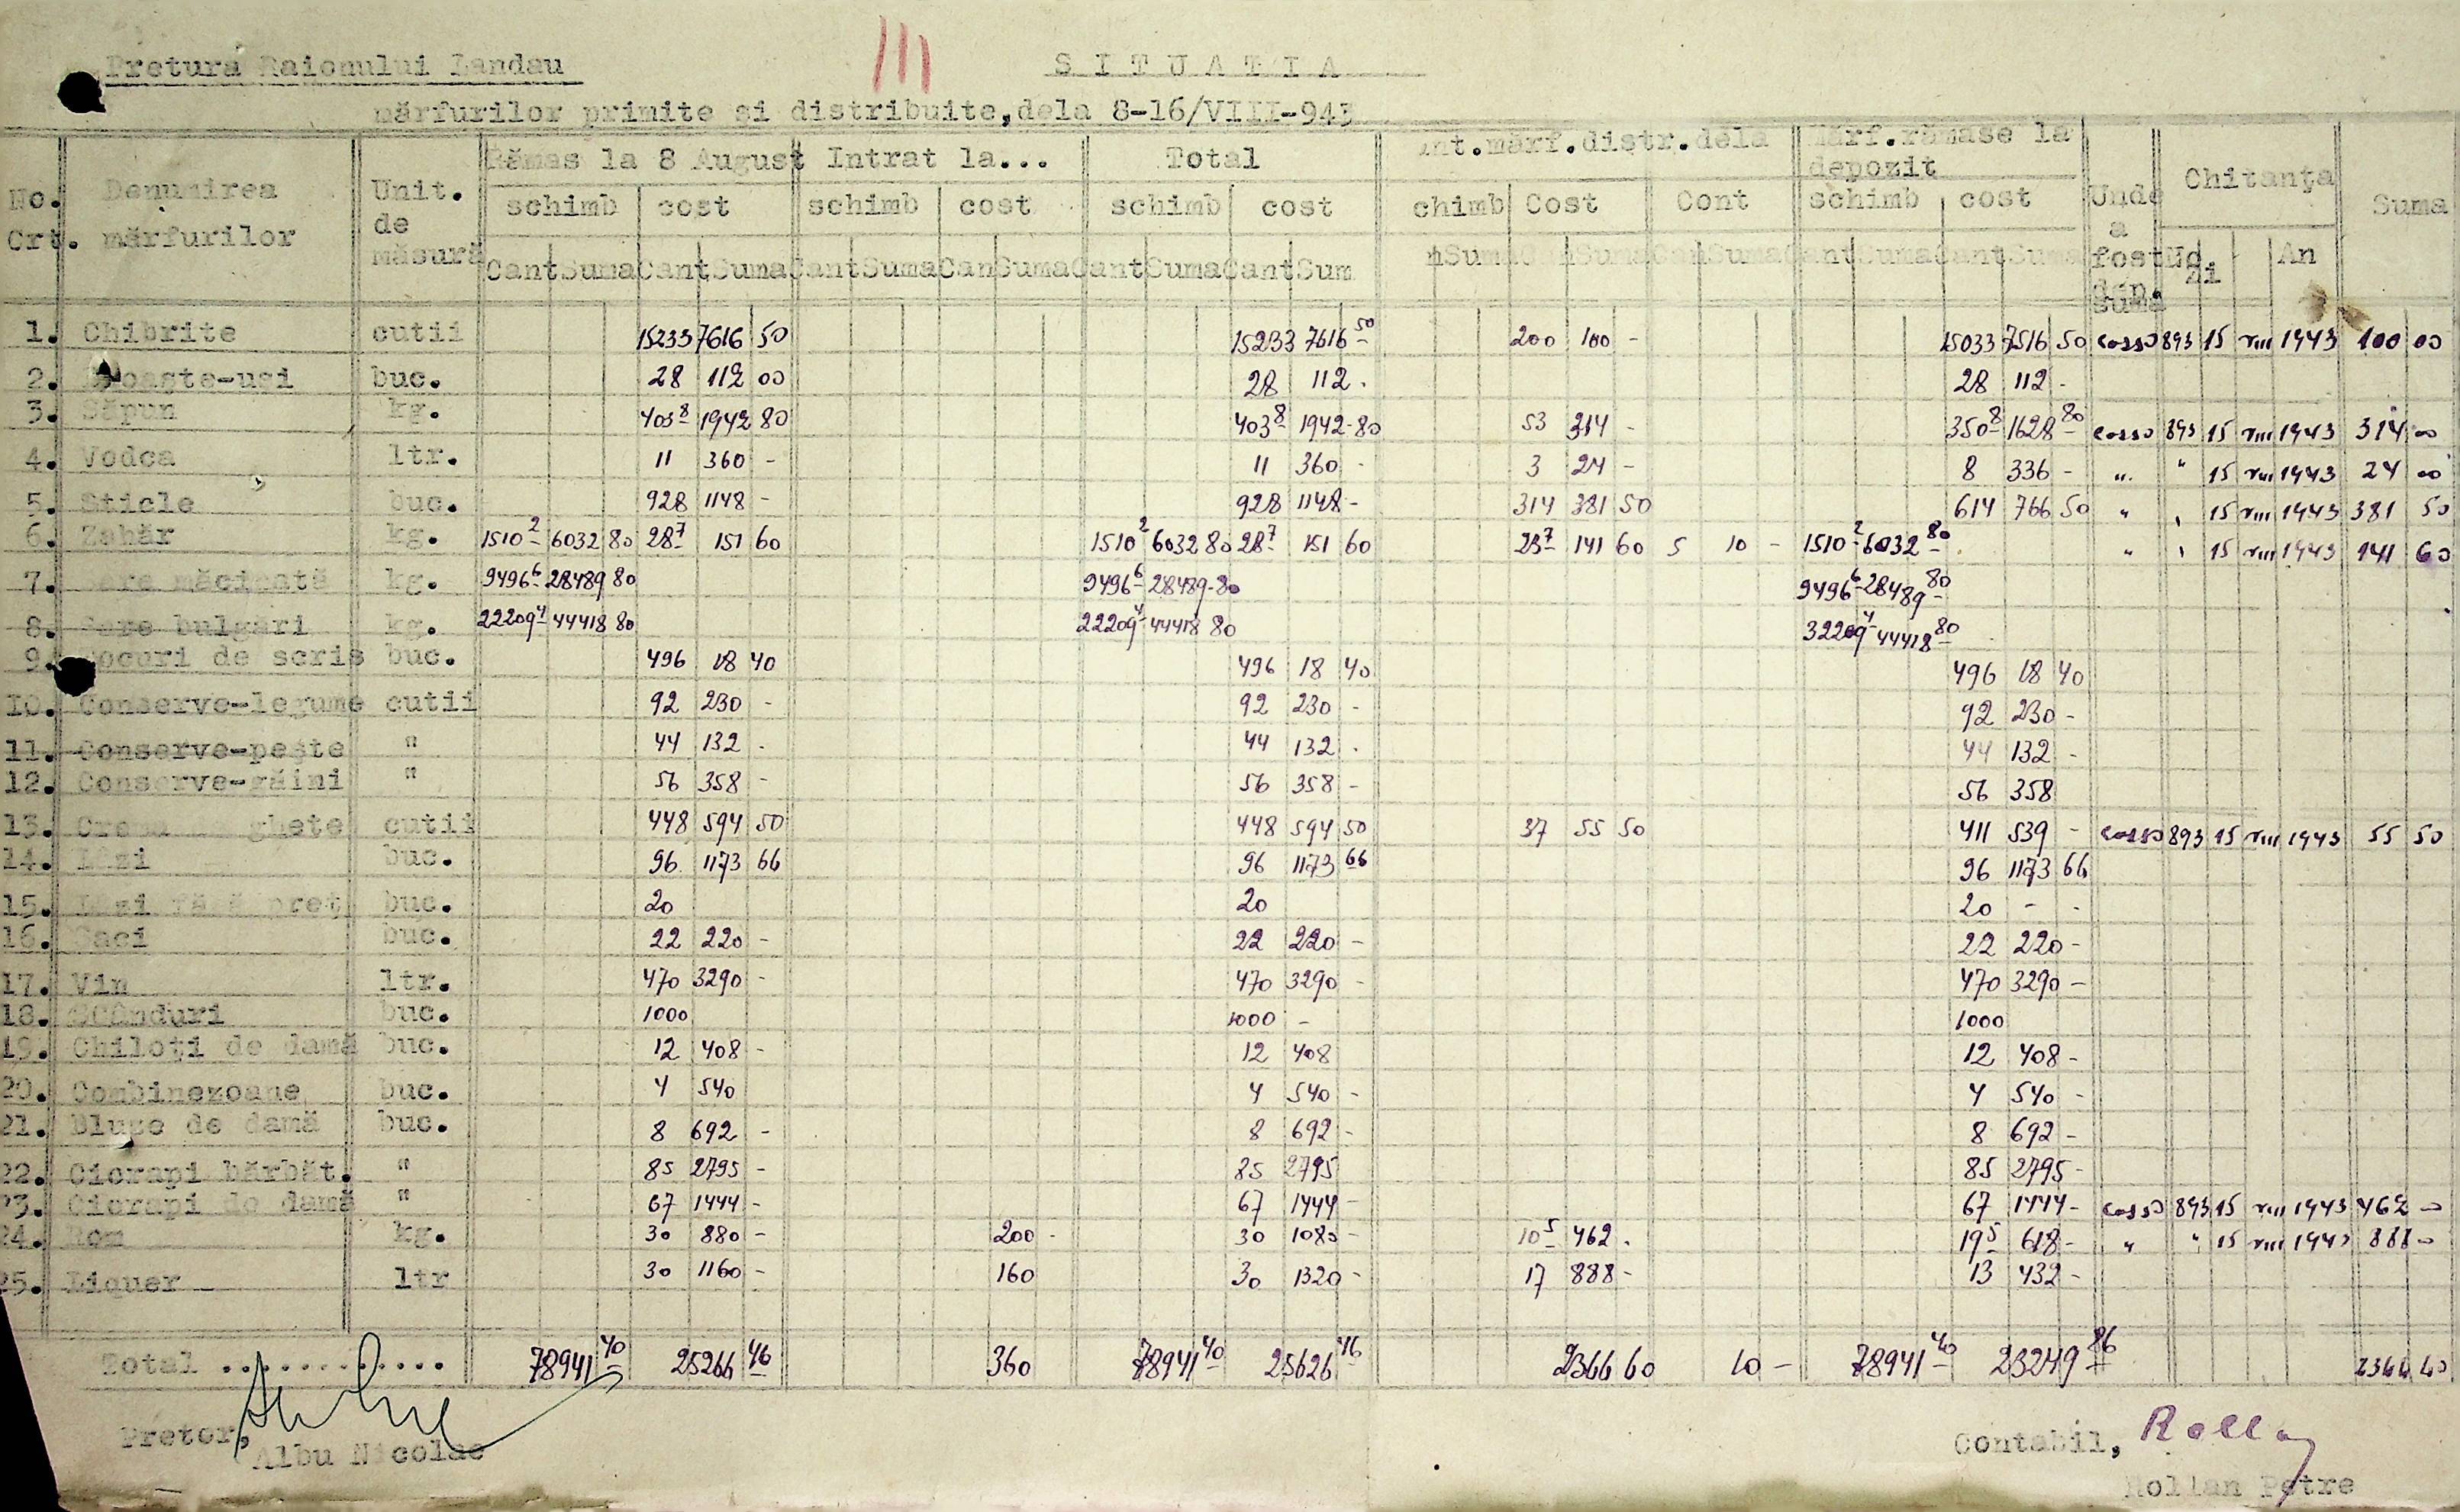 Pretura Raionului Landau
III
SITUATIA
mărfurilor primite și distribuite,dela 8-16/VIII-943
No. Crt. Denumirea mărfurilor Unit. de măsură Rămas la 8 August Intrat la... Total mărf.distr.dela Mărf.rămase la depozit Unde a fost dep. suma Chitanța Suma
schimb cost schimb cost schimb cost chimb Cost Cont schimb cost
Cant Suma Cant Suma Cant Suma Can Suma Cant Suma Cant Sum Suma Suma Can Suma Cant Suma Cant Suma No Zi An
1. Chibrite cutii 15233 7616 50 15233 7616 50 200 100 - 15033 7516 50 casso 893 15 VIII 1943 100 00
2. buc. 28 112 00 28 112 . 28 112 -
3. Săpun kg. 403 8 1942 80 403 8 1942-80 53 314 - 350 8 1628 80 casso 893 15 VIII 1943 314 00
4. Vodca ltr. 11 360 - 11 360 - 3 24 - 8 336 - " " 15 VIII 1943 24 00
5. Sticle buc. 928 1148 - 928 1148 - 314 381 50 614 766 50 " " 15 VIII 1943 381 50
6. Zahăr kg. 1510 2 6032 80 28 7 151 60 1510 2 6032 80 28 7 151 60 23 7 141 60 5 10 - 1510 2 6032 80 " " 15 VIII 1943 141 60
7. Sare măcinată kg. 9496 6 28489 80 9496 6 28489-80 9496 6 28489 80
8. Sare bulgări kg. 22209 4 44418 80 22209 4 44418 80 32209 4 44418 80
9. Tocuri de scris buc. 496 18 40 496 18 40 496 18 40
10. Conserve-legume cutii 92 230 - 92 230 - 92 230 -
11. Conserve-pește " 44 132 . 44 132 . 44 132 -
12. Conserve-găini " 56 358 - 56 358 - 56 358
13. Crema ghete cutii 448 594 50 448 594 50 37 55 50 411 539 - casso 893 15 VIII 1943 55 50
14. Lăzi buc. 96 1173 66 96 1173 66 96 1173 66
15. Lăzi fără preț buc. 20 20 20 - -
16. Saci buc. 22 220 - 22 220 - 22 220 -
17. Vin ltr. 470 3290 - 470 3290 - 470 3290 -
18. buc. 1000 1000 - 1000
19. Chiloți de damă buc. 12 408 - 12 408 12 408 -
20. Combinezoane buc. 4 540 4 540 - 4 540 -
21. Bluze de damă buc. 8 692 - 8 692 - 8 692 -
22. Ciorapi bărbăt. " 85 2795 - 85 2795 85 2795 -
23. Ciorapi de damă " 67 1444 - 67 1444 - 67 1444 - casso 893 15 VIII 1943 462 -
24. Rom kg. 30 880 - 200 - 30 1080 - 10 5 462 . 19 5 618 - " " 15 VIII 1943 888 -
25. Liquer ltr 30 1160 - 160 30 1320 - 17 888 - 13 432 -
Total ............ 78941 40 25266 46 360 78941 40 25626 46 2366 60 10 - 78941 40 23249 86 2366 60
Pretor,
Albu Nicolae
Contabil, Rollan
Rollan Petre